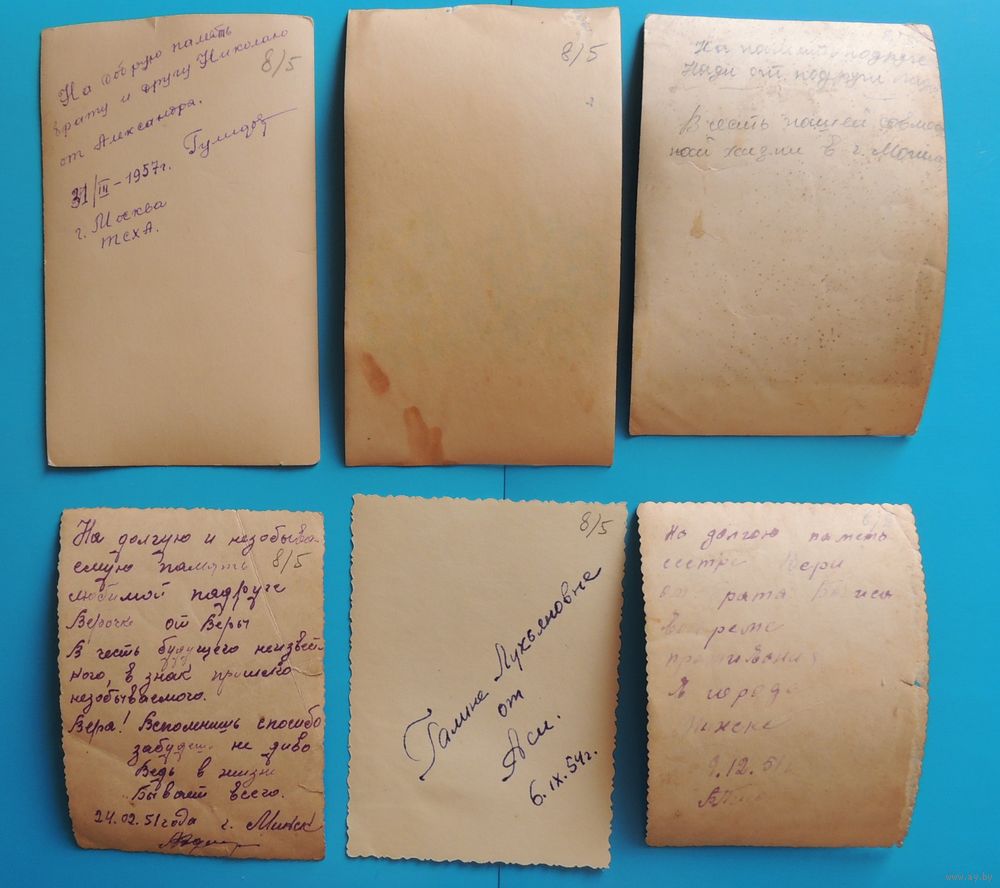 На добрую память
брату и другу Николаю
8/5
от Александра.
31/III – 1957г.
г. Москва
тсхА.
8/5
На память подруге
Нади от подруги
В честь нашей
ной жизни в г.
На долгую и незобыва
емую память 8/5
любимой падруге
Верочке от Веры
В честь будущего неизвест
ного, в знак прошлого
незобываемого.
Вера! Вспомнишь способо
забудеш не диво
Ведь в жизни
Бывает всего.
24.02.51 года г. Минск
8/5
Галине Лукьяновне
от
Аси.
6.IX.54г.
На долгою память
сестре Вери
от брата
В городе
9.12.51
www.ay.by